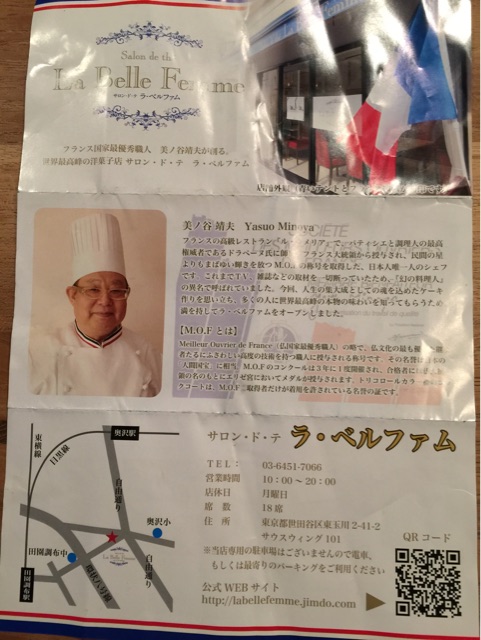 Salon de thé
La Belle Femme
サロン・ド・テ ラ・ベルファム
フランス国家最優秀職人 美ノ谷靖夫が創る。
世界最高峰の洋菓子店 サロン・ド・テ ラ・ベルファム
美ノ谷 靖夫 Yasuo Minoya
フランスの高級レストラン
パティシエと調理人の最高
権威者であるドラベーヌ氏に師
フランス大統領から授与され、"民間の星
よりもまばゆい輝きを放つM.O.F
の称号を取得した、日本人唯一人のシェフ
です。これまでTV、雑誌などの取材を一切断っていたため、「幻の料理人」
の異名で呼ばれていました。今回、人生の集大成としての魂を込めたケーキ
作りを思い立ち、多くの人に世界最高峰の本物の味わいを知ってもらうため
満を持してラ・ベルファムをオープンしました。
【M.O.F とは】
Meilleur Ouvrier de France（仏国家最優秀職人）の略で、仏文化の最も優
者たるにふさわしい高度の技術を持つ職人に授与される称号です。その名誉は
人間国宝 に相当。M.O.Fのコンクールは3年に1度開催され、合格者には
領の名のもとにエリゼ宮においてメダルが授与されます。トリコロールカラー
クコートは、M.O.F 取得者だけが着用を許されている名誉の証です。
サロン・ド・テ ラ・ベルファム
TEL： 03-6451-7066
営業時間 10：00～20：00
店休日 月曜日
席 数 18席
住 所 東京都世田谷区東玉川2-41-2
サウスウィング101
※当店専用の駐車場はございませんので、電車、
もしくは最寄りのパーキングをご利用ください
公式WEBサイト
http://labellefemme.jimdo.com
QRコード
奥沢駅
東横線
目黒線
自由通り
奥沢小
田園調布中
La Belle Femme
自由通り
環状八号線
田園調布駅